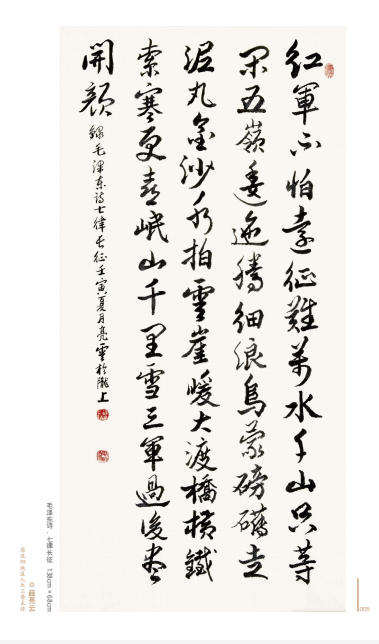 紅軍不怕遠征難萬水千山只等
閑五嶺逶迤騰細浪烏蒙磅礴走
泥丸金沙水拍雲崖暖大渡橋橫鐵
索寒更喜岷山千里雪三軍過後盡
開顏
錄毛澤东诗七律长征壬寅夏月亮雲於隴上
毛泽东诗·七律长征 138cm×68cm
◎ 薛亮云
005